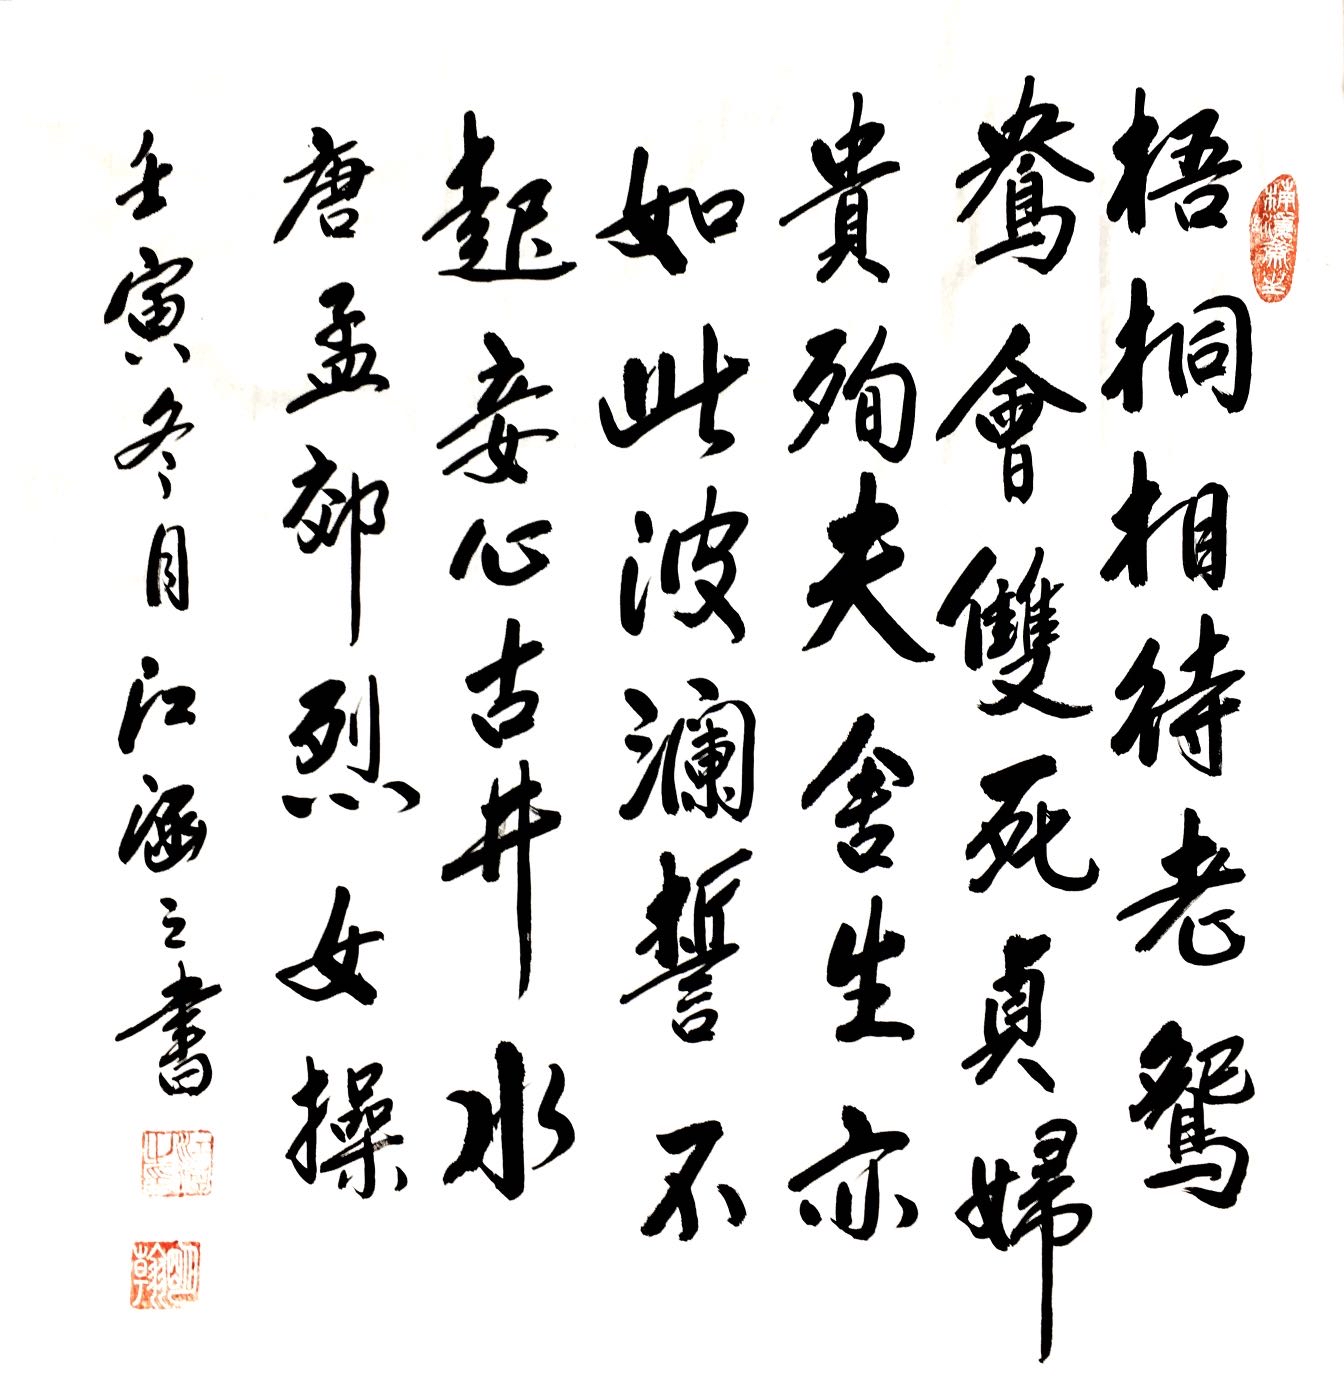 梧桐相待老鴛
鴦會雙死貞婦
貴殉夫舍生亦
如此波澜誓不
起妾心古井水
唐孟郊烈女操
壬寅冬月江涵之書